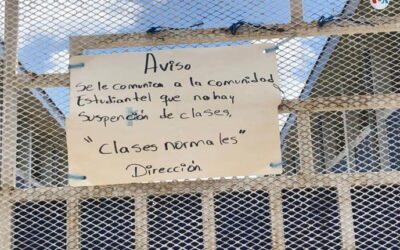 Aviso
Se le comunica a la comunidad
Estudiantel que no hay
Suspención de clases,
"Clases normales"
Dirección